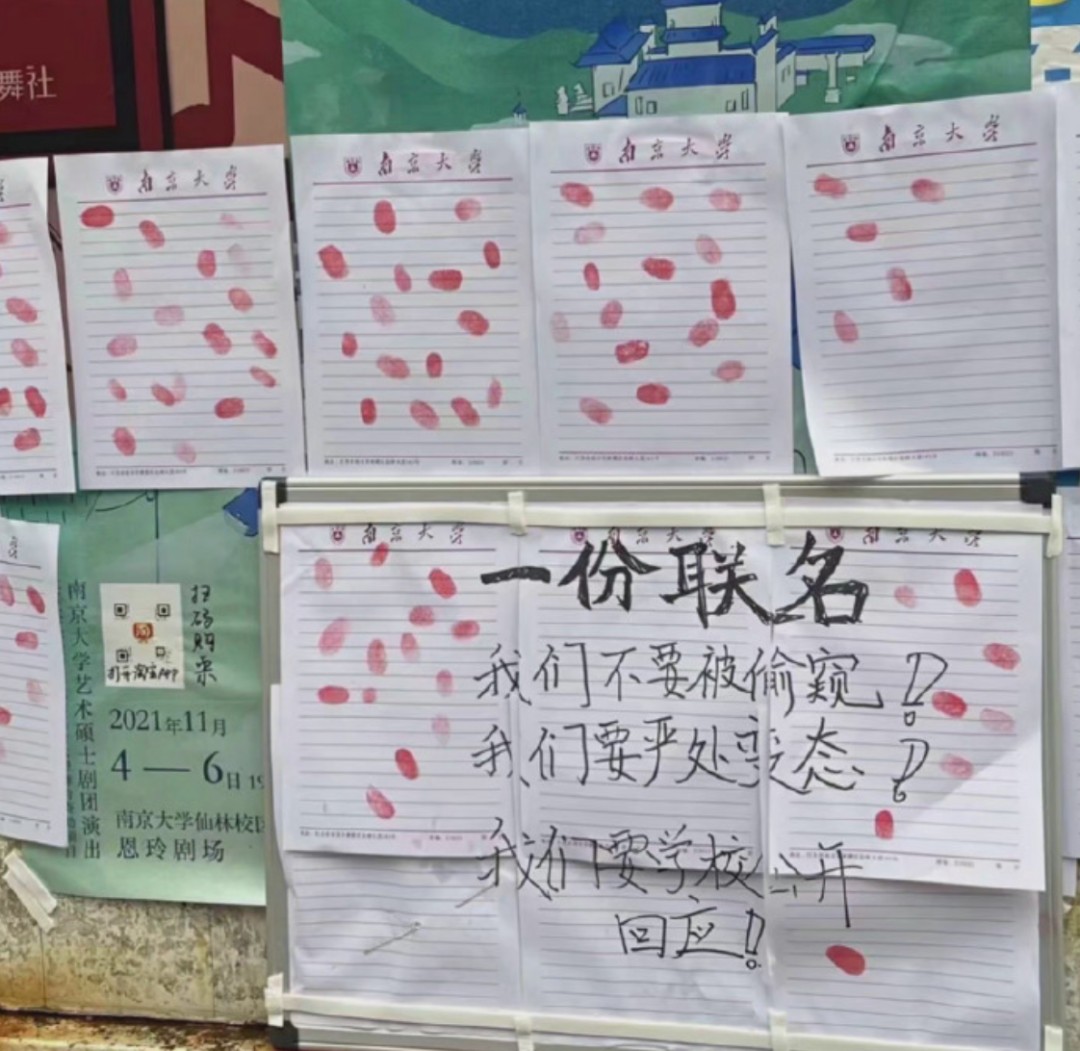 舞社
南京大学
南京大学
南京大学
南京大学
南京大学
南京大学
南京大学
一份联名
我们不要被偷窥!
我们要严处变态!
我们要学校公开
回应!
南京大学艺术硕士剧团演出
扫码购票
打开淘宝APP
2021年11月
4—6日 19
南京大学仙林校区
恩玲剧场